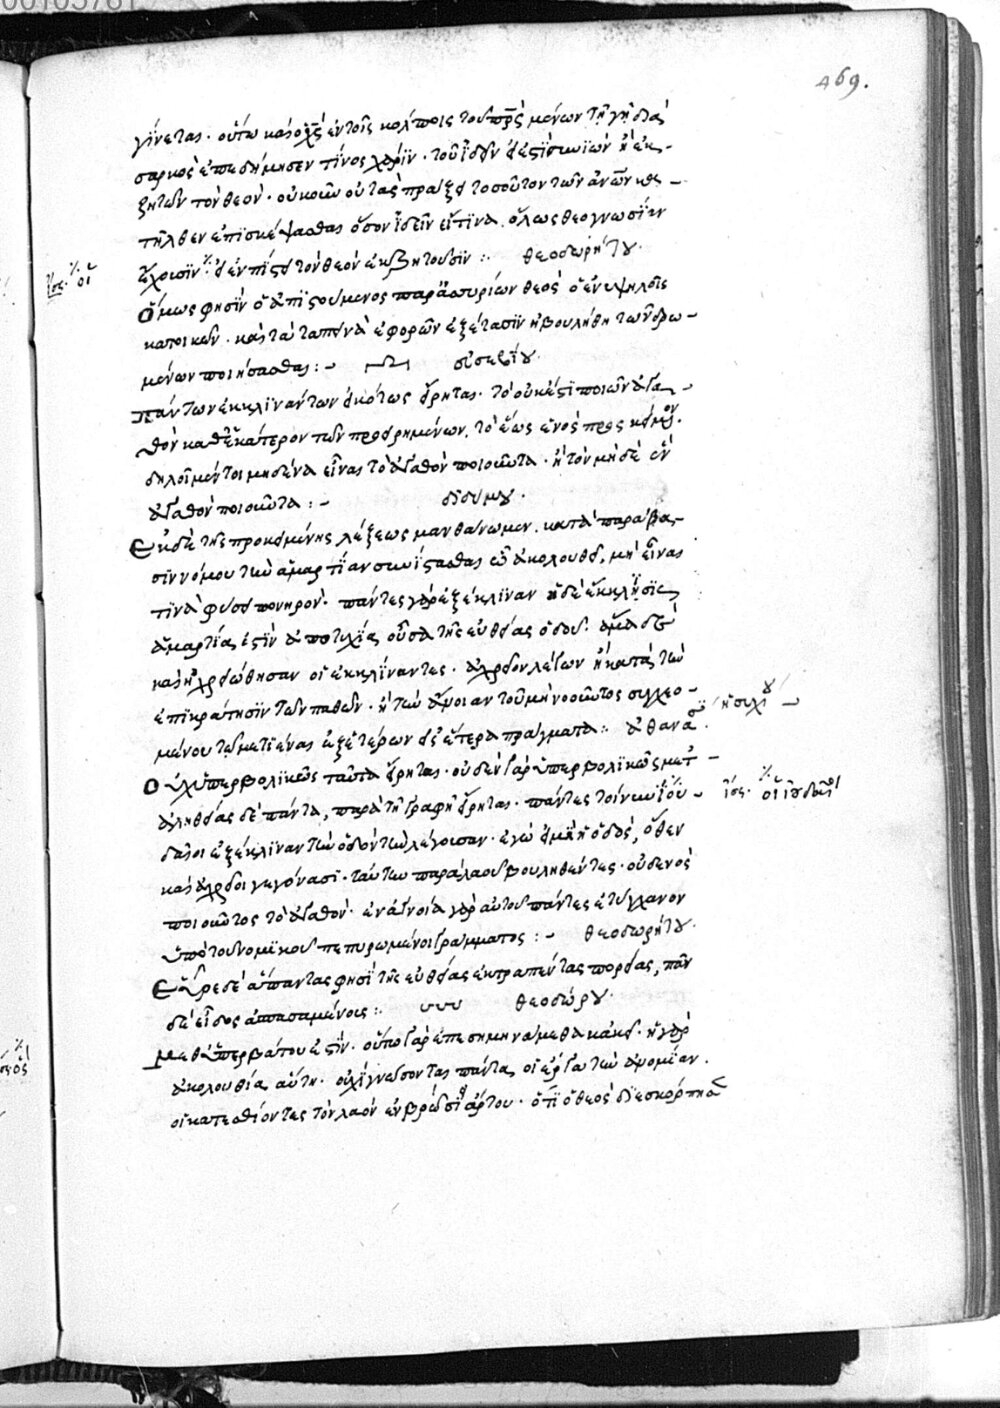 469.
γίνεται · οὕτω καὶ ὁ χς ἐν τοῖς κόλποις τοῦ πρς μένων τῇ γῇ διὰ
σαρκὸς ἐπεδήμησεν τίνος χάριν · τοῦ ἰδεῖν εἰ ἔστι συνιὼν ἢ ἐκ-
ζητῶν τὸν θεόν · οὐκοῦν οὐ τὰς πράξεις τοσοῦτον τῶν ἀνων
τῆλθεν ἐπισκέψασθαι ὅσον ἰδεῖν εἴ τινα ὅλως θεογνωσίαν
ἔχουσιν · εἰ ἐν πίστει τὸν θεὸν ἐκζητοῦσιν :· θεοδωρήτου ·
ἴσ. οἱ
Ὅμως φησὶν ὁ ἀπιστούμενος παρὰ ἀσσυρίων θεὸς ὁ ἐν ὑψηλοῖς
κατοικῶν · καὶ τὰ ταπεινὰ ἐφορῶν ἐξέτασιν ἠβουλήθη τῶν δρω-
μένων ποιήσασθαι :- εὐσεβίου ·
Πάντων ἐκκλινάντων εἰκότως εἴρηται · τὸ οὐκ ἔστι ποιῶν ἀγα-
θὸν καθ' ἑκάτερον τῶν προειρημένων. τὸ ἕως ἑνὸς πρὸς κείμενον ·
δηλοῖ μέντοι μηδένα εἶναι τὸ ἀγαθὸν ποιοῦντα · ἢ τὸν μηδὲ ἓν
ἀγαθὸν ποιοῦντα :- διδύμου ·
Ἐκ δὲ τῆς προκειμένης λέξεως μανθάνωμεν. κατὰ παράβα-
σιν νόμου τὴν ἁμαρτίαν συνίστασθαι ᾧ ἀκολουθεῖ, μὴ εἶναί
τινα φύσει πονηρόν · πάντες γὰρ ἐξέκλιναν ἡ δὲ ἔκκλησις
ἁμαρτία ἐστὶν ἀποτυχία οὖσα τῆς εὐθείας ὁδοῦ · ἅμα δὲ
καὶ ἠχρειώθησαν οἱ ἐκκλίναντες · ἀχρεῖον λέγων ἢ κατὰ τὴν
ἐπικράτησιν τῶν παθῶν · ἢ τὴν ἄνοιαν τοῦ μὴ νοοῦντος συγχεο-
ἡσυχίου
μένου τῷ μετιέναι ἐξ ἑτέρων εἰς ἕτερα πράγματα :· ἀθανασίου ·
Οὐχ ὑπερβολικῶς ταῦτα εἴρηται · οὐδὲν γὰρ ὑπερβολικῶς μετ
ἀληθείας δὲ πάντα, παρὰ τῇ γραφῇ εἴρηται · πάντες τοίνυν ἰου-
ἴσ. οἱ ἰουδαῖοι
δαῖοι ἐξέκλιναν τὴν ὁδὸν τὴν λέγουσαν · ἐγώ εἰμι ἡ ὁδός, ὅθεν
καὶ ἀχρεῖοι γεγόνασι · ταύτην παρελθεῖν βουληθέντες · οὐδενὸς
ποιοῦντος τὸ ἀγαθόν · ἐν ἀγνοίᾳ γὰρ αὐτοῦ πάντες ἐτύγχανον
ὑπὸ τοῦ νομικοῦ πεπυρωμένοι γράμματος :- θεοδωρήτου ·
Εὗρε δὲ ἅπαντας φησὶ τῆς εὐθείας ἐκτραπέντας πορείας, πᾶν
δὲ εἶδος ἀσπασαμένους :· θεοδώρου ·
Μεθ' ὑπερβατοῦ ἐστὶν · ὅπου γὰρ ἐπεσημηνάμεθα κἀκεῖ · ἡ γὰρ
ἀκολουθία αὕτη · οὐχὶ γνώσονται πάντες οἱ ἐργαζόμενοι τὴν ἀνομίαν ·
οἱ κατεσθίοντες τὸν λαόν ἐν βρώσει ἄρτου · ὅτι ὁ θεὸς διεσκόρπισεν